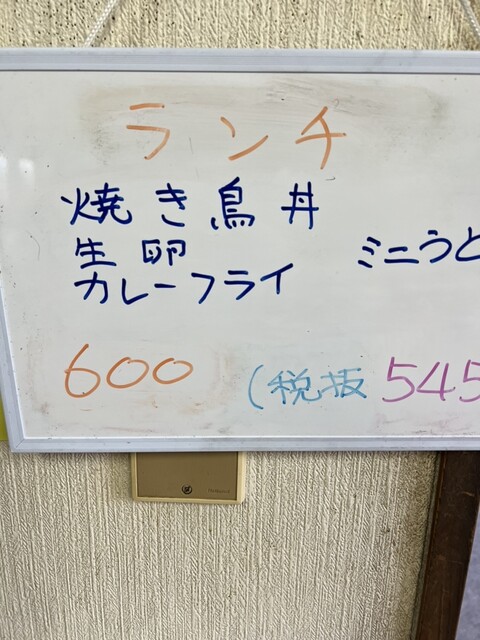 ランチ
焼き鳥丼
生卵 ミニうど
カレーフライ
600 (税抜 545